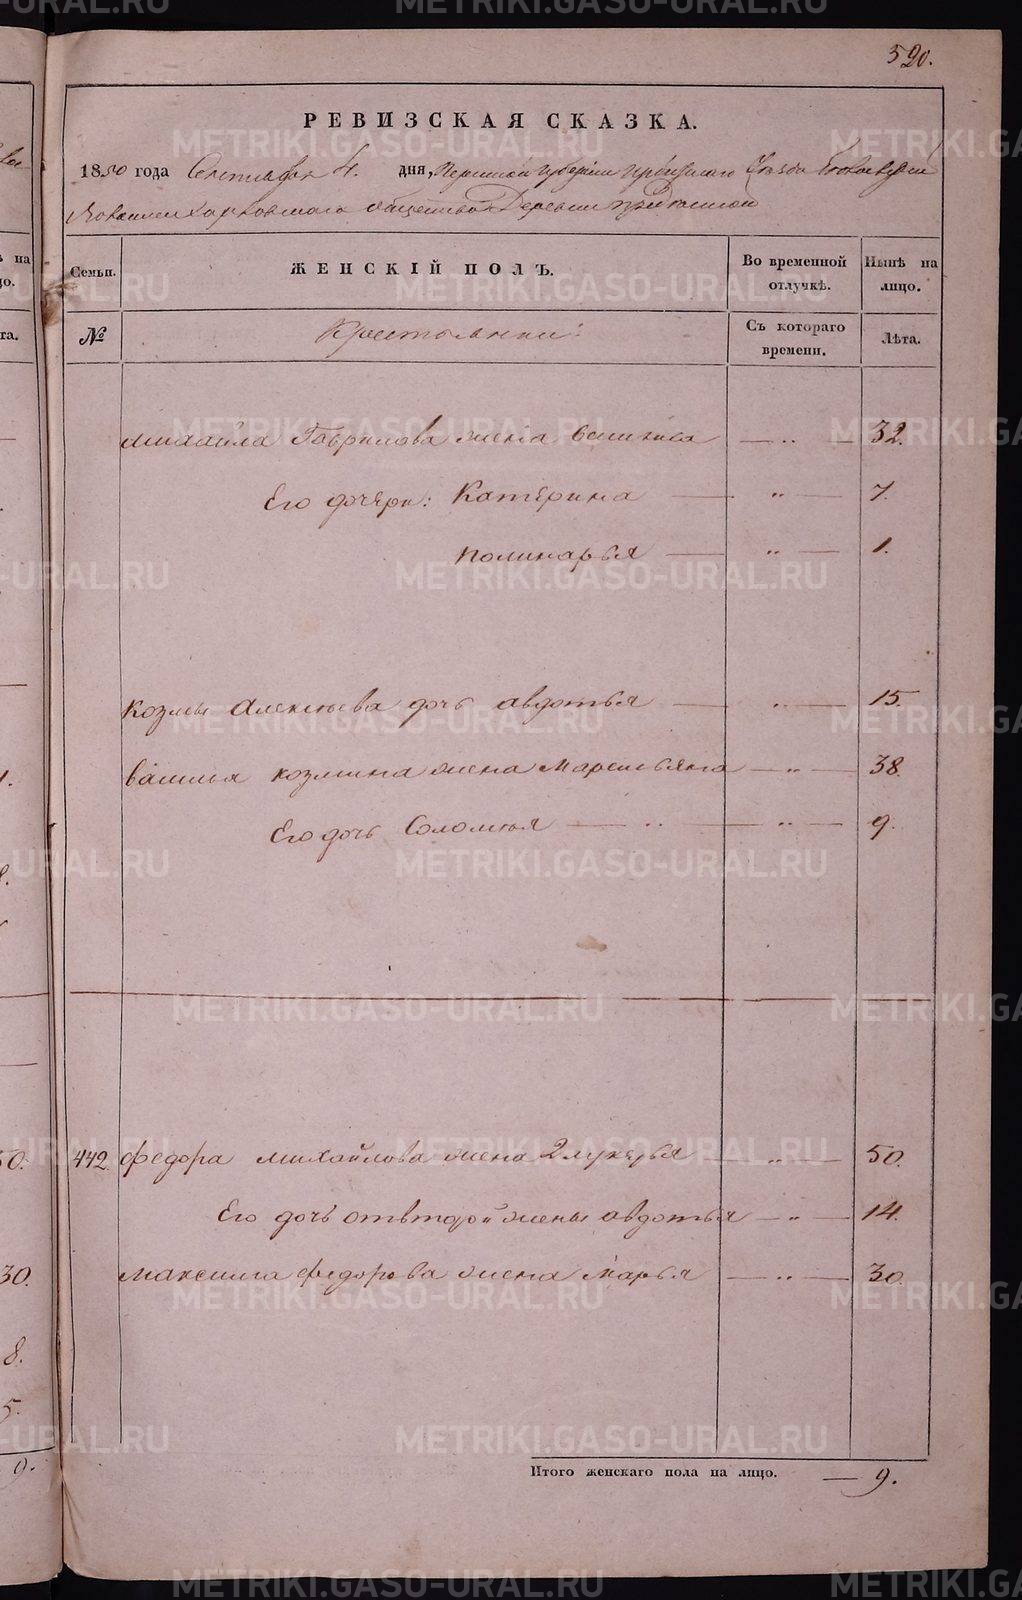 520.
РЕВИЗСКАЯ СКАЗКА.
1850 года Сентября 4. дня, Пермской губернии Ирбитскаго Уѣзда
Харловскаго общества Деревни
Семьи. ЖЕНСКІЙ ПОЛЪ. Во временной отлучкѣ. Нынѣ на лицо.
№ Крестьянки: Съ котораго времени. Лѣта.
михайла Гаврилова жена 32.
Его дочери: Катерина 7.
полинарья 1.
козмы Алексѣева дочь авдотья 15.
василья козмина жена Маремьяна 38.
Его дочь Соломея 9.
442. федора михайлова жена Глукерья 50.
Его дочь отвторой жены авдотья 14.
максима федорова жена марья 30.
Итого женскаго пола на лицо. — 9.
на
ло.
та.
30.
8.
5.
9.
METRIKI.GASO-URAL.RU